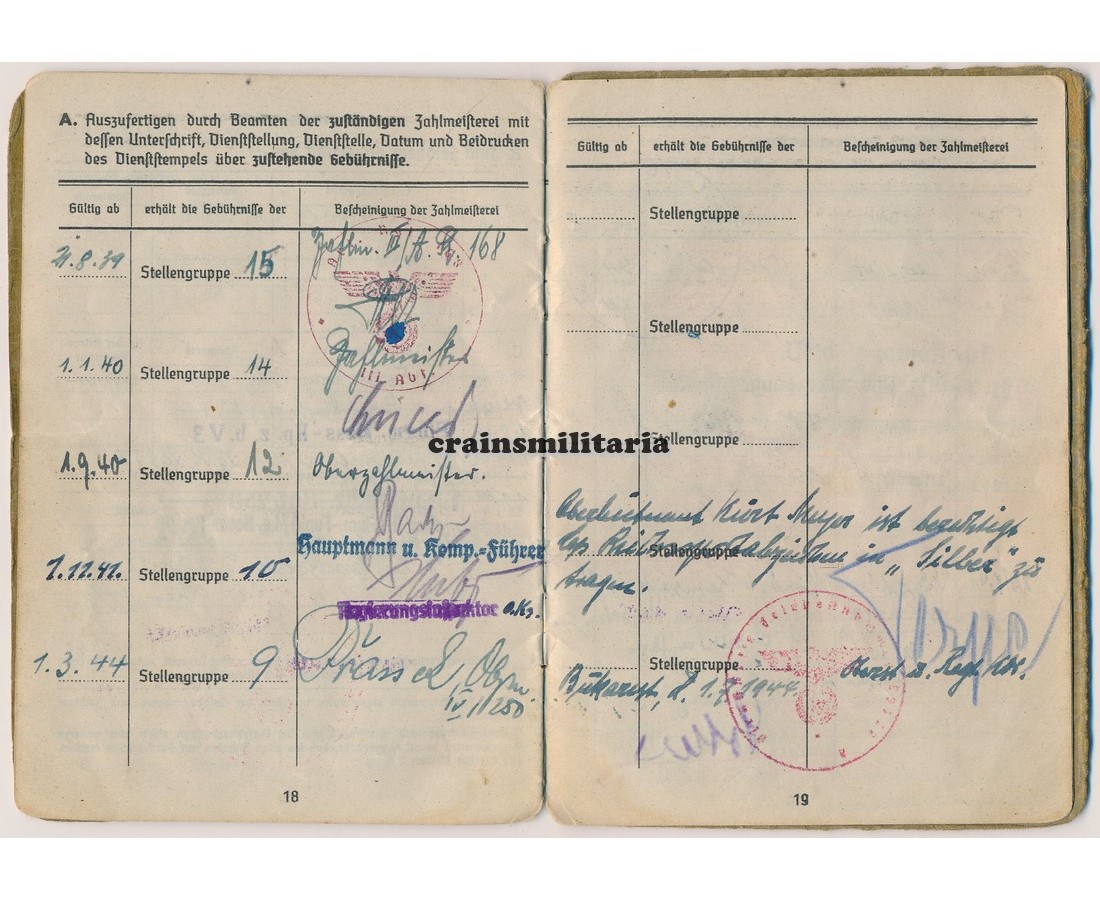 A. Auszufertigen durch Beamten der zuständigen Zahlmeisterei mit
dessen Unterschrift, Dienststellung, Dienststelle, Datum und Beidrucken
des Dienststempels über zustehende Gebührnisse.
Gültig ab erhält die Gebührnisse der Bescheinigung der Zahlmeisterei
8.39 Stellengruppe 15 Zahlm. III/A.R. 168
III Abt.
1.1.40 Stellengruppe 14 Zahlmeister
1.9.40 Stellengruppe 12 Oberzahlmeister.
Hauptmann u. Komp.-Führer
1.12.41. Stellengruppe 10
a.Kr.
1.3.44 Stellengruppe 9
18
Gültig ab erhält die Gebührnisse der Bescheinigung der Zahlmeisterei
Stellengruppe
Stellengruppe
crainsmilitaria
Stellengruppe
Oberleutnant Kurt Meyer ist berechtigt
Stellengruppe
in „Silber" zu
tragen.
Stellengruppe
Oberst u. Regt. Kdr.
Bukarest, d. 1.7.1944.
19